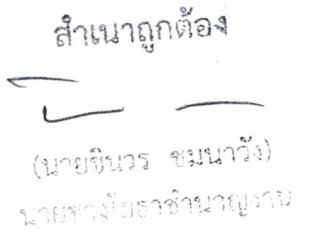 สำเนาถูกต้อง
(นายชินวร ชมนาวัง)
นายช่างโยธาชำนาญงาน